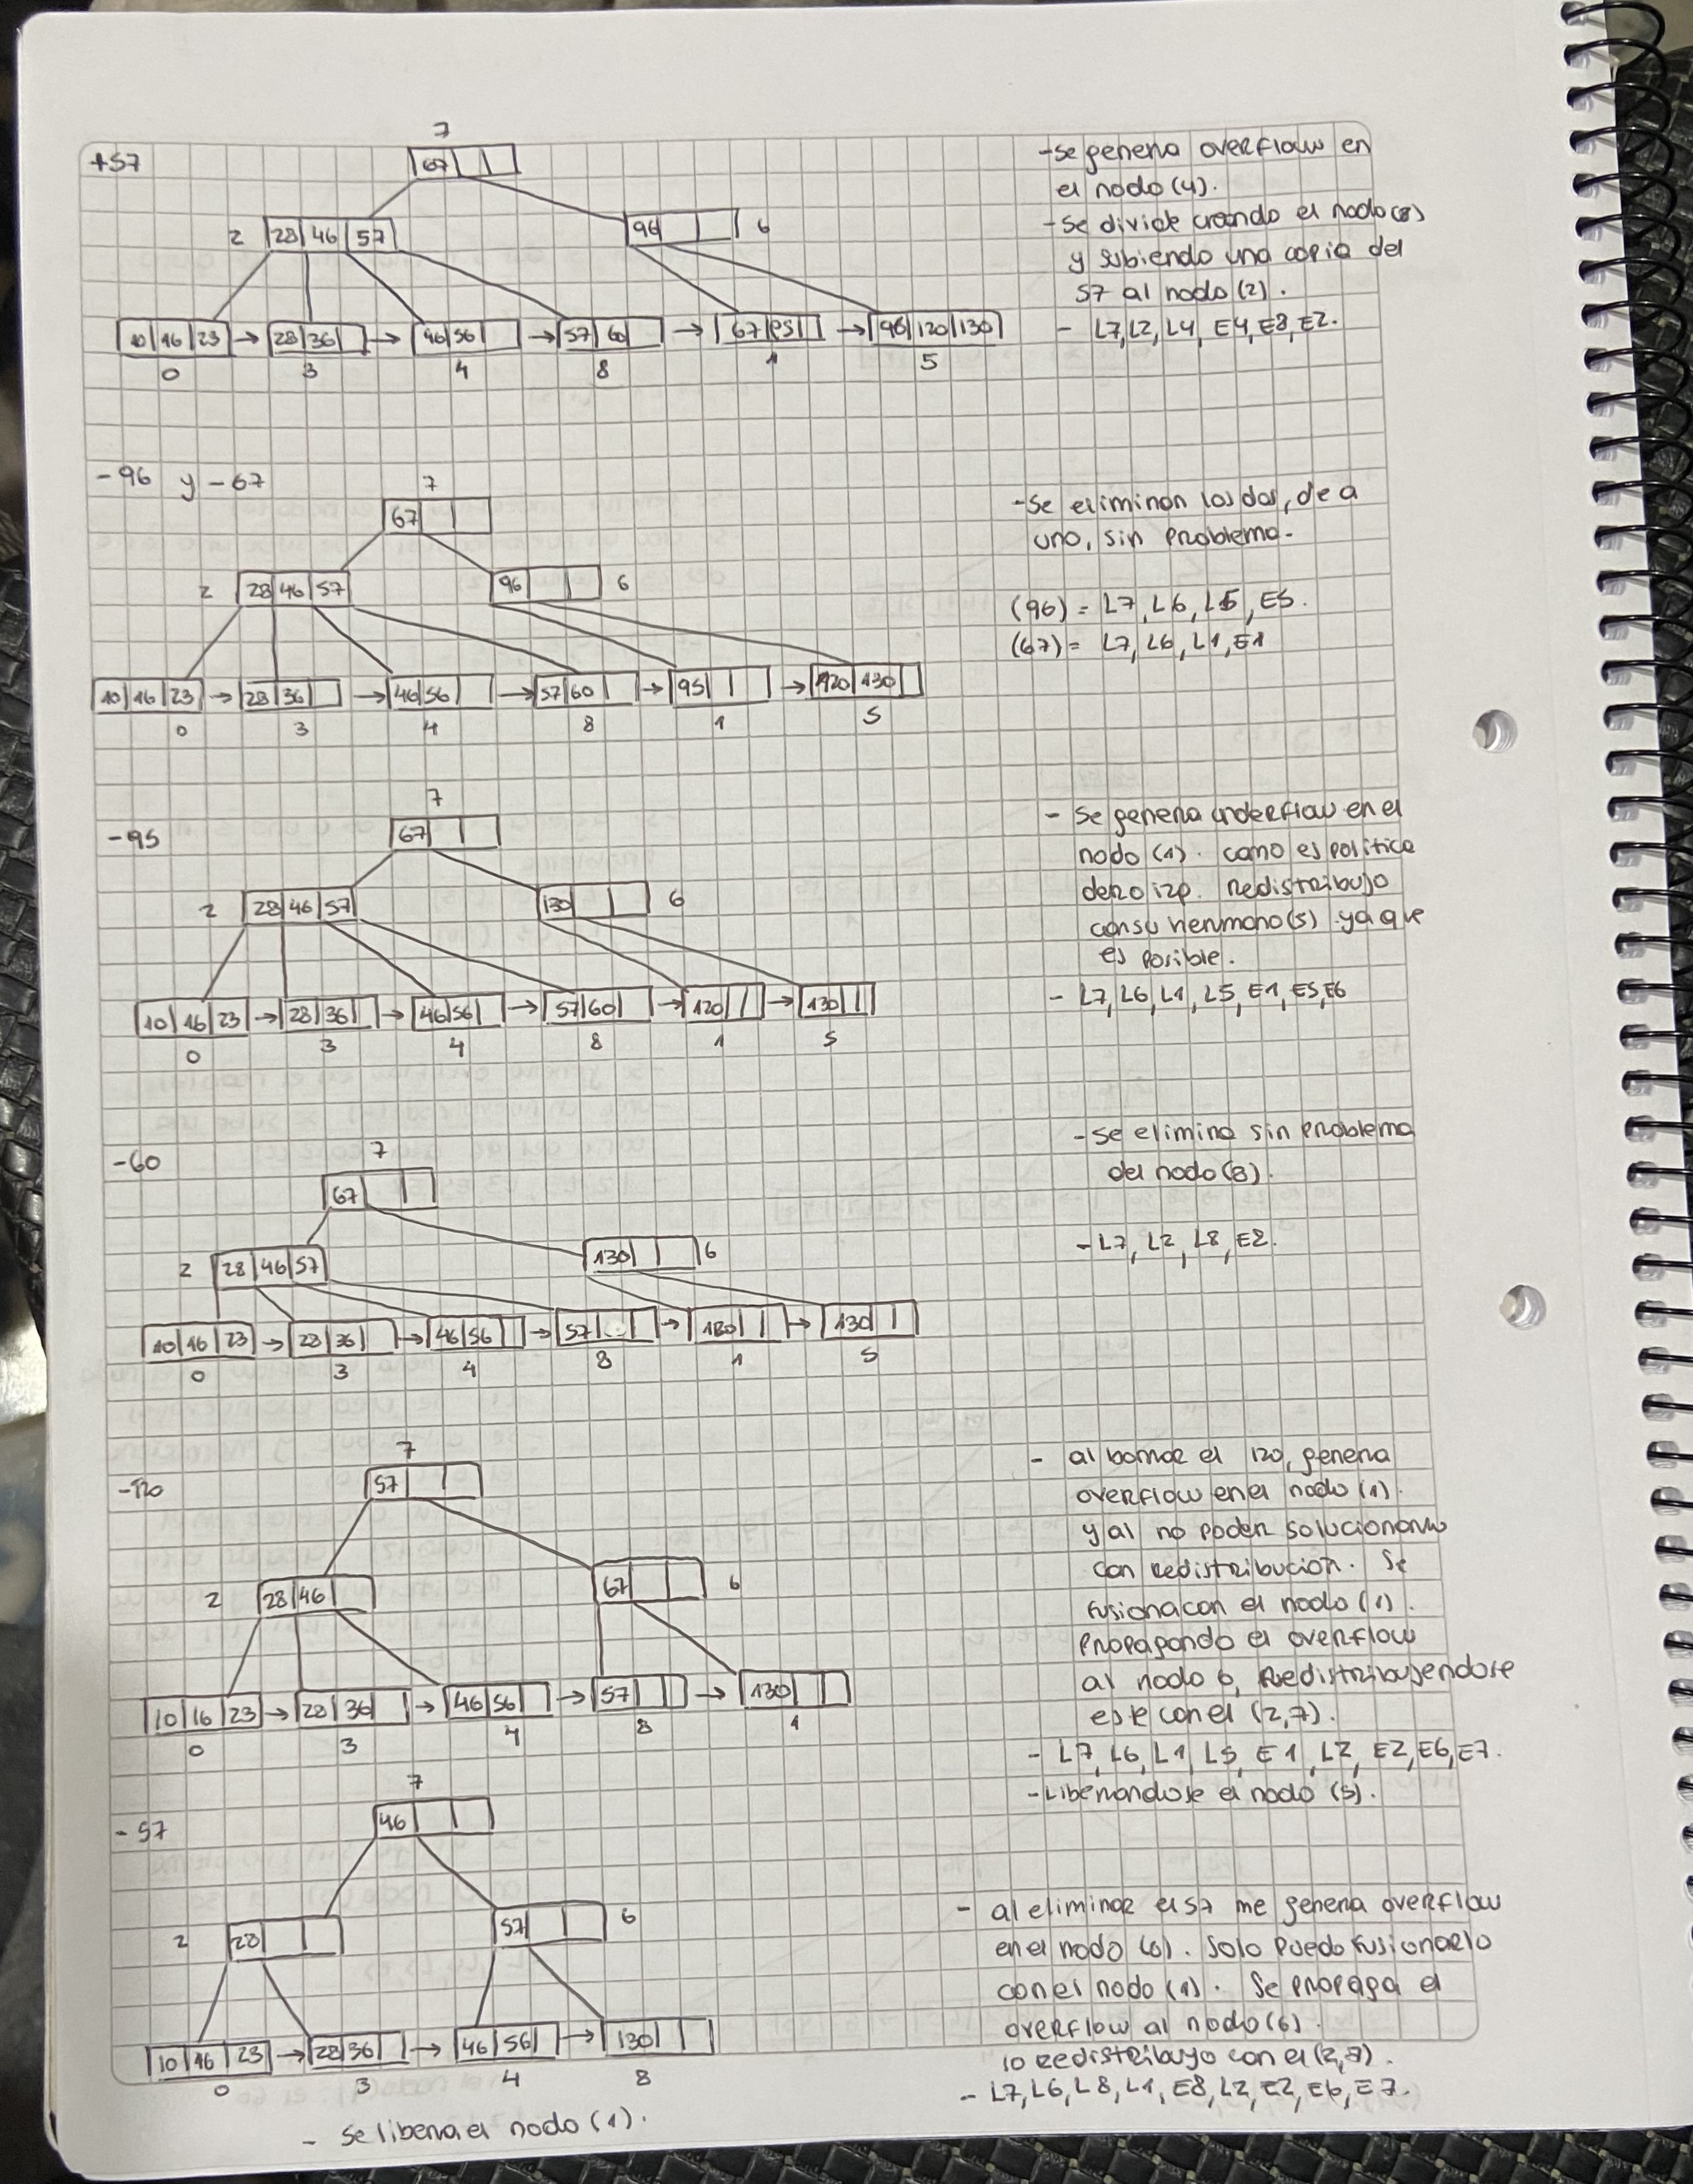 +57
7
67
2 28 46 57
96 6
10 16 23 → 28 36 → 46 56 → 57 60 → 67 95 → 96 120 130
0 3 4 8 1 5
-se genera overflow en
el nodo (4).
-se divide creando el nodo (8)
y subiendo una copia del
57 al nodo (2).
- L7, L2, L4, E4, E8, E2.
-96 y -67
7
67
2 28 46 57
96 6
10 16 23 → 28 36 → 46 56 → 57 60 → 95 → 120 130
0 3 4 8 1 5
-Se eliminan los dos, de a
uno, sin problema.
(96) = L7, L6, L5, E5.
(67) = L7, L6, L1, E1
-95
7
67
2 28 46 57
130 6
10 16 23 → 28 36 → 46 56 → 57 60 → 120 → 130
0 3 4 8 1 5
- se genera underflow en el
nodo (1). como es politica
der o izq. redistribuyo
con su hermano (5) ya que
es posible.
- L7, L6, L1, L5, E1, E5, E6
-60
7
67
2 28 46 57
130 6
10 16 23 → 28 36 → 46 56 → 57 → 120 → 130
0 3 4 8 1 5
-se elimina sin problema
del nodo (8).
-L7, L2, L8, E8.
-120
7
57
2 28 46
67 6
10 16 23 → 28 36 → 46 56 → 57 → 130
0 3 4 8 1
- al borrar el 120, genera
overflow en el nodo (1).
y al no poder solucionarlo
con redistribucion. Se
fusiona con el nodo (1).
propagando el overflow
al nodo 6, Redistribuyendose
este con el (2,7).
- L7, L6, L1, L5, E1, L2, E2, E6, E7.
-Liberandose el nodo (5).
-57
7
46
2 28
57 6
10 16 23 → 28 36 → 46 56 → 130
0 3 4 8
- al eliminar el 57 me genera overflow
en el nodo (6). Solo puedo fusionarlo
con el nodo (1). Se propaga el
overflow al nodo (6).
lo redistribuyo con el (2,7).
- L7, L6, L8, L1, E8, L2, E2, E6, E7.
- Se libera el nodo (1).